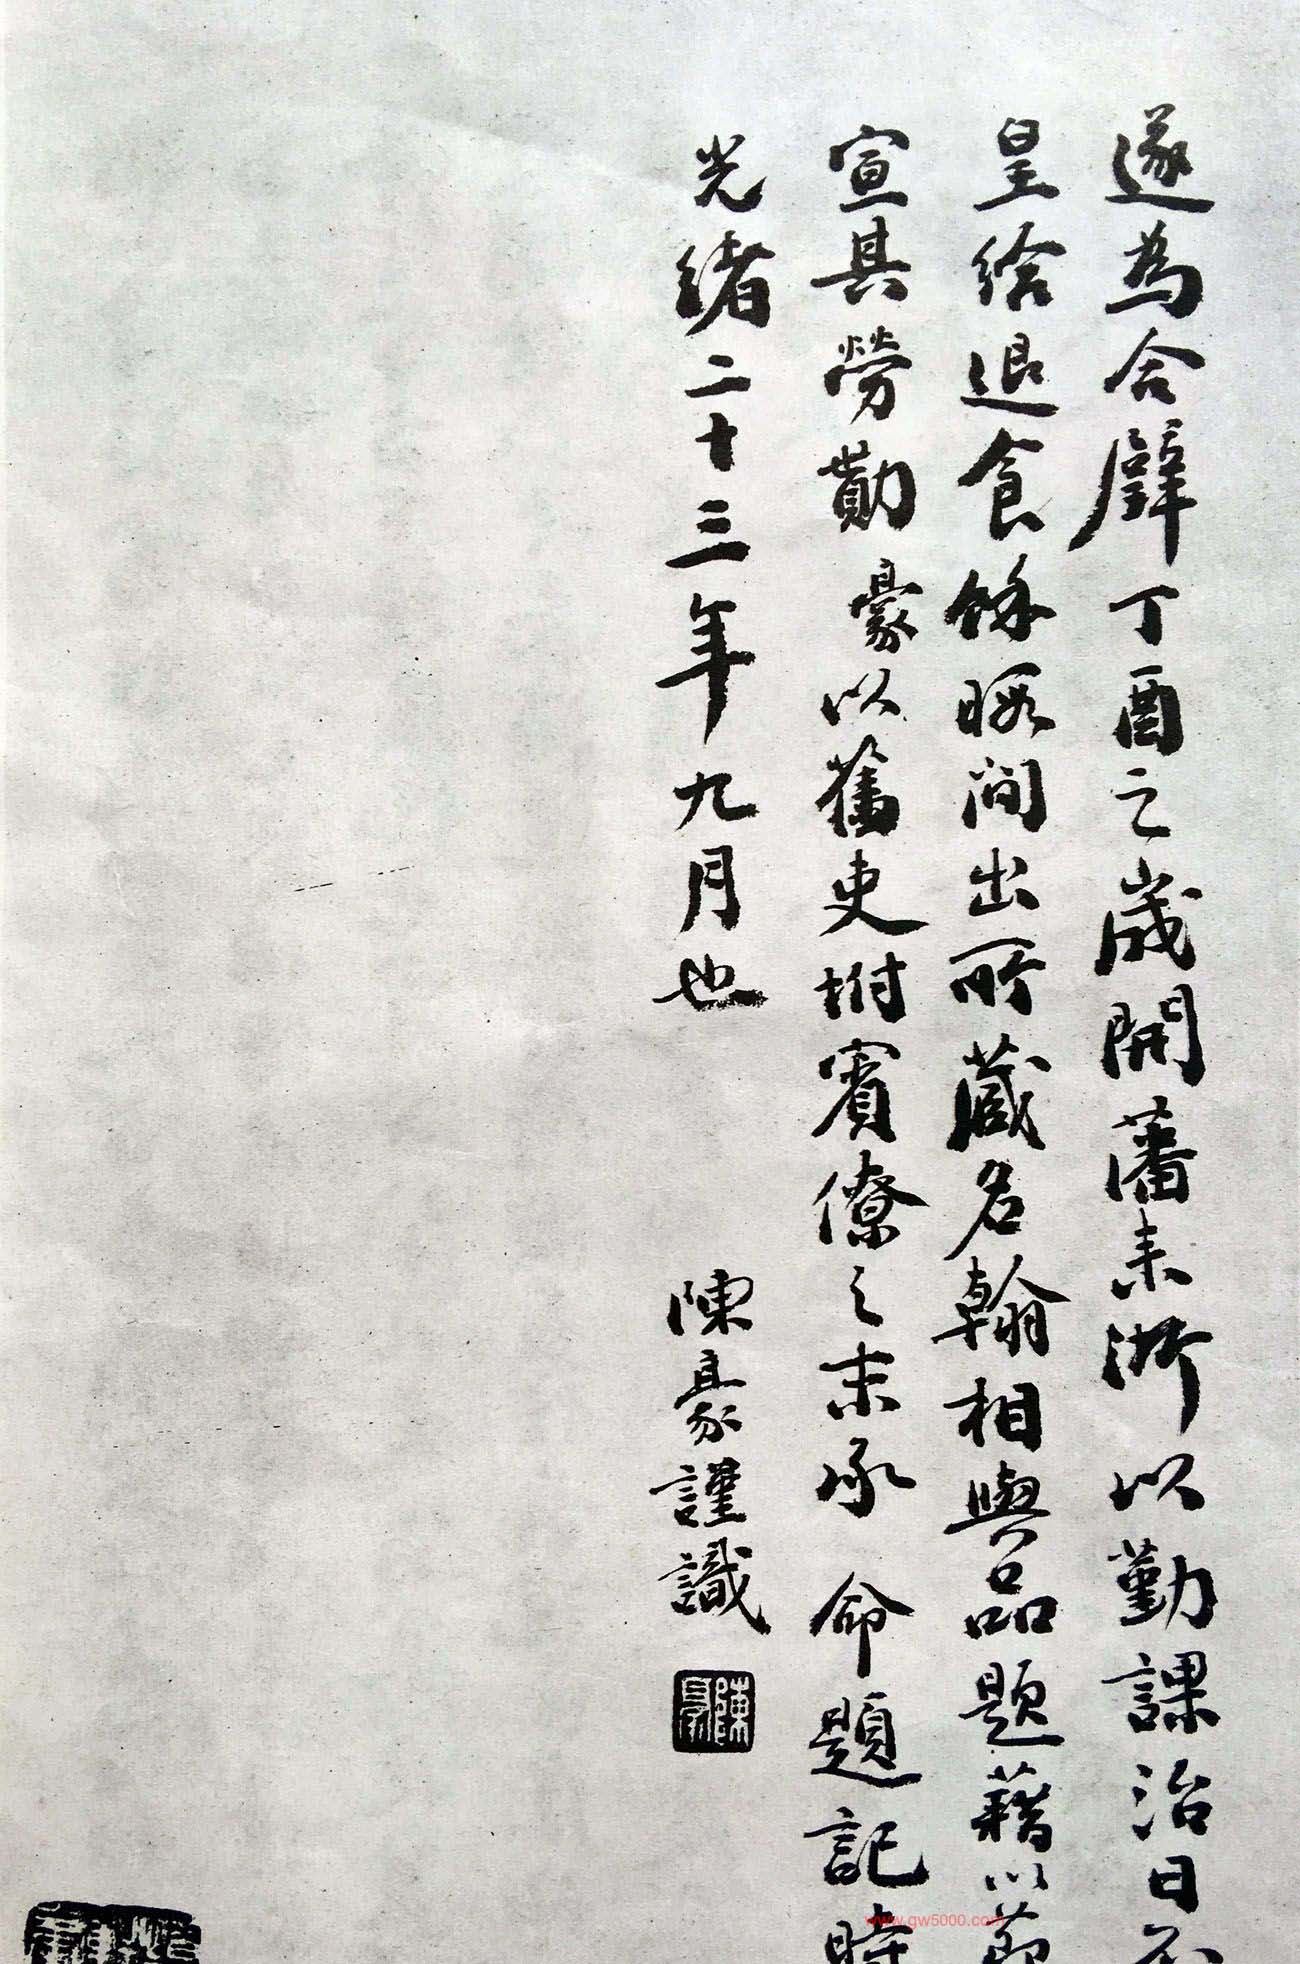 遂為合璧丁酉之歲開藩來浙以勤課治日不
皇給退食餘暇間出所藏名翰相與品題藉以節
宣其勞勩豪以舊吏坿賓僚之末承命題記時
光緒二十三年九月也
陳豪謹識
陳豪
www.gw5000.com